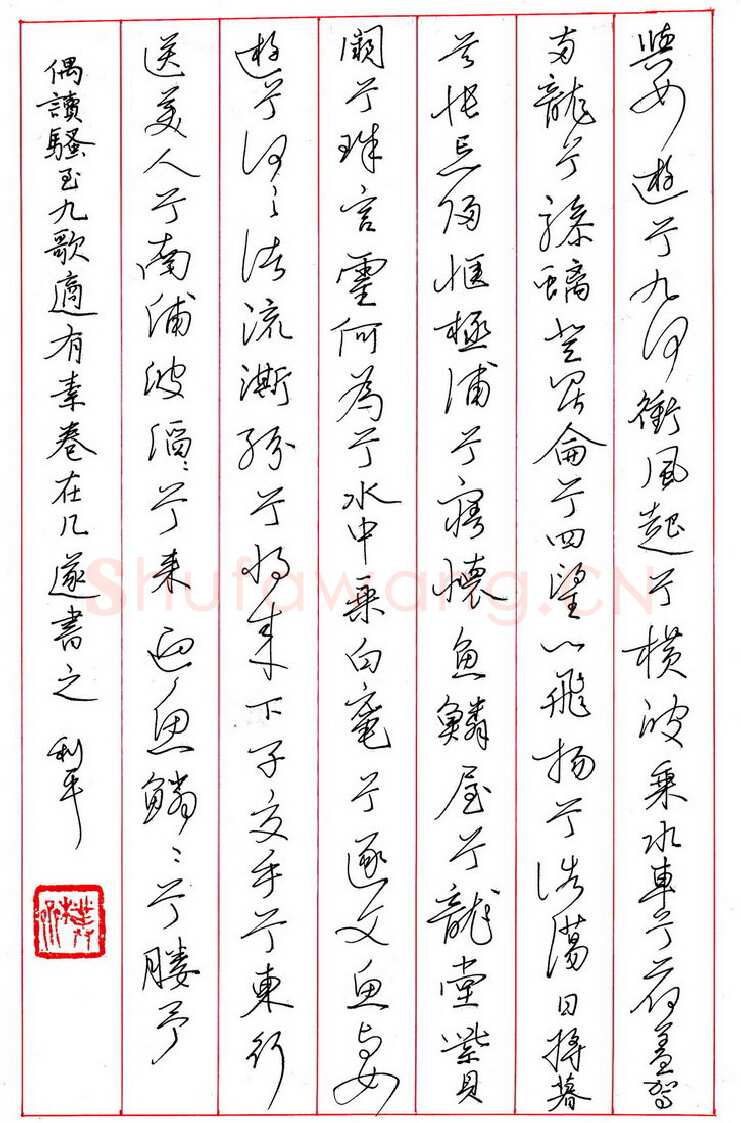 與女遊兮九河衝風起兮橫波乘水車兮荷蓋駕
兩龍兮驂螭登昆侖兮四望心飛揚兮浩蕩日將暮
兮悵忘歸惟極浦兮寤懷魚鱗屋兮龍堂紫貝
闕兮珠宮靈何為兮水中乘白黿兮逐文魚与女
遊兮河之渚流澌紛兮將來下子交手兮東行
送美人兮南浦波滔〻兮來迎魚鱗〻兮媵予
偶讀騷至九歌適有素卷在几遂書之 利平
Shufawang.CN